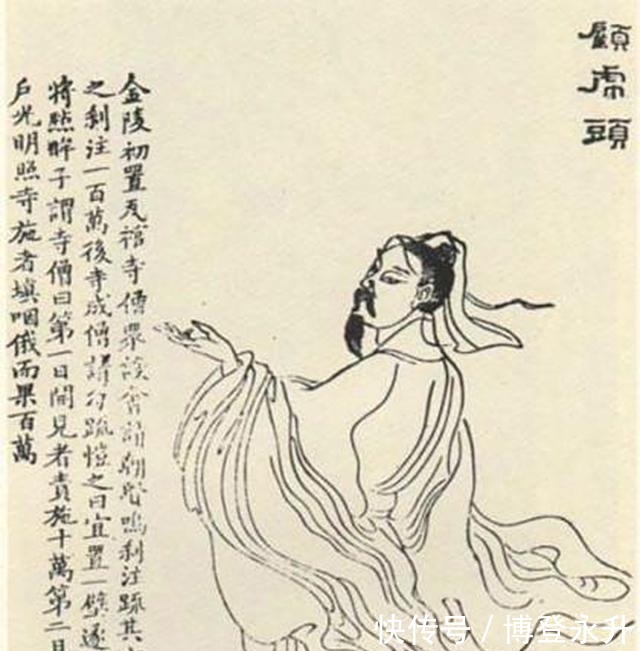 顧虎頭
金陵初置瓦棺寺僧眾設會請朝賢鳴刹注疏其
之刹注一百萬後寺成僧請勾疏愷之曰宜置一壁遂
將點眸子謂寺僧曰第一日開見者責施十萬第二日
戶光明照寺施者填咽俄而果百萬
快传号／博登永升